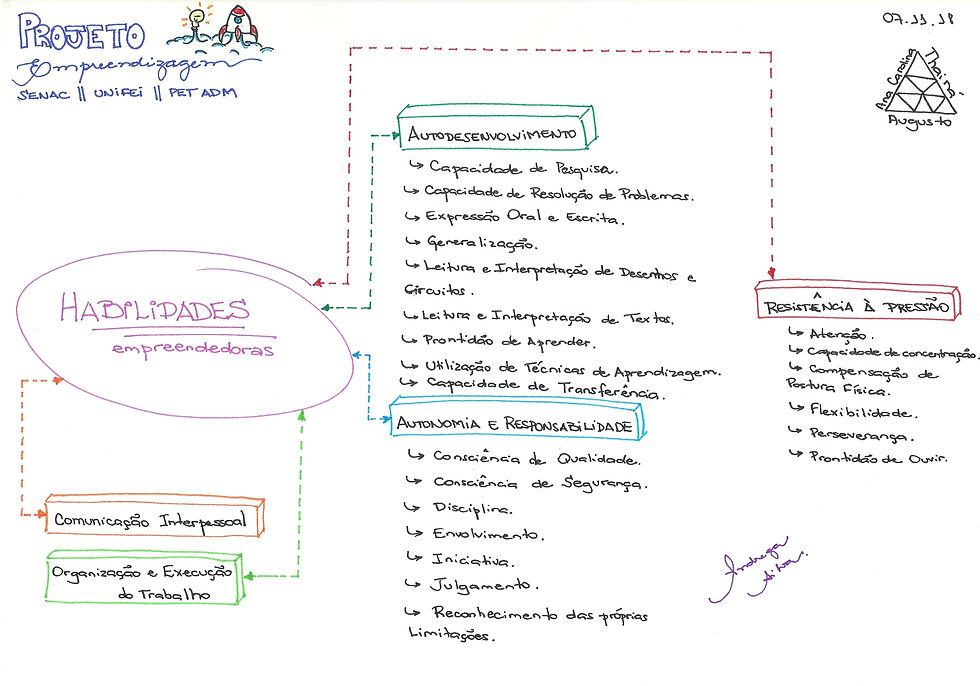 PROJETO
Empreendizagem
SENAC || UNIFEI || PET ADM
07.11.18
Ana Carolina
Thainá
Augusto
AUTODESENVOLVIMENTO
↳ Capacidade de Pesquisa.
↳ Capacidade de Resolução de Problemas.
↳ Expressão Oral e Escrita.
↳ Generalização.
↳ Leitura e Interpretação de Desenhos e
Circuitos.
↳ Leitura e Interpretação de Textos.
↳ Prontidão de Aprender.
↳ Utilização de Técnicas de Aprendizagem.
↳ Capacidade de Transferência.
HABILIDADES
empreendedoras
RESISTÊNCIA À PRESSÃO
↳ Atenção.
↳ Capacidade de concentração.
↳ Compensação de
Postura Física.
↳ Flexibilidade.
↳ Perseverança.
↳ Prontidão de Ouvir.
AUTONOMIA E RESPONSABILIDADE
↳ Consciência de Qualidade.
↳ Consciência de Segurança.
↳ Disciplina.
↳ Envolvimento.
↳ Iniciativa.
↳ Julgamento.
↳ Reconhecimento das próprias
Limitações.
Comunicação Interpessoal
Organização e Execução
do Trabalho